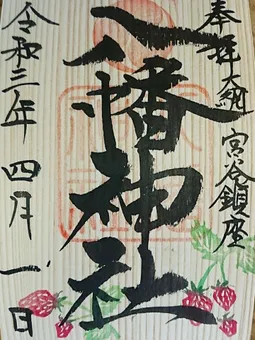 奉拝 大納 宮谷鎮座
八幡神社
令和三年 四月一日